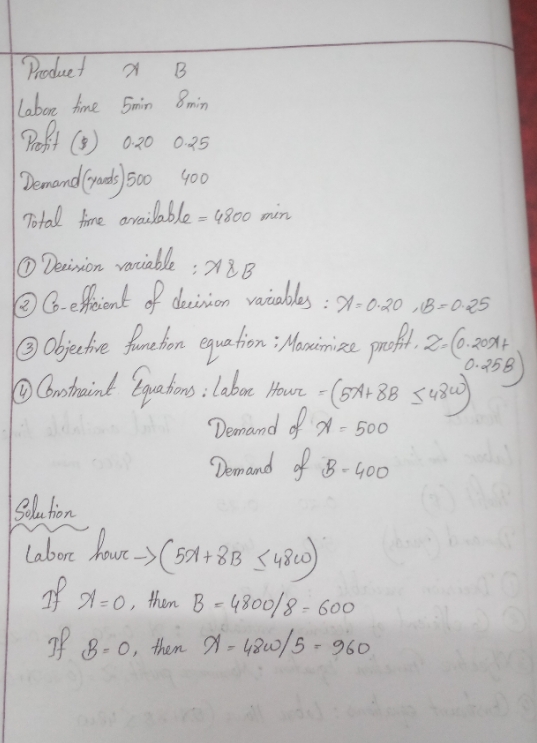 Product A B
Labor time 5min 8min
Profit ($) 0.20 0.25
Demand (yards) 500 400
Total time available = 4800 min
① Decision variable : A & B
② Co-efficient of decision variables : A = 0.20, B = 0.25
③ Objective function equation : Maximize profit. Z = (0.20A +
0.25B)
④ Constraint Equations : Labor Hour = (5A + 8B ≤ 4800)
Demand of A = 500
Demand of B = 400
Solution
Labor hour → (5A + 8B ≤ 4800)
If A = 0, then B = 4800/8 = 600
If B = 0, then A = 4800/5 = 960